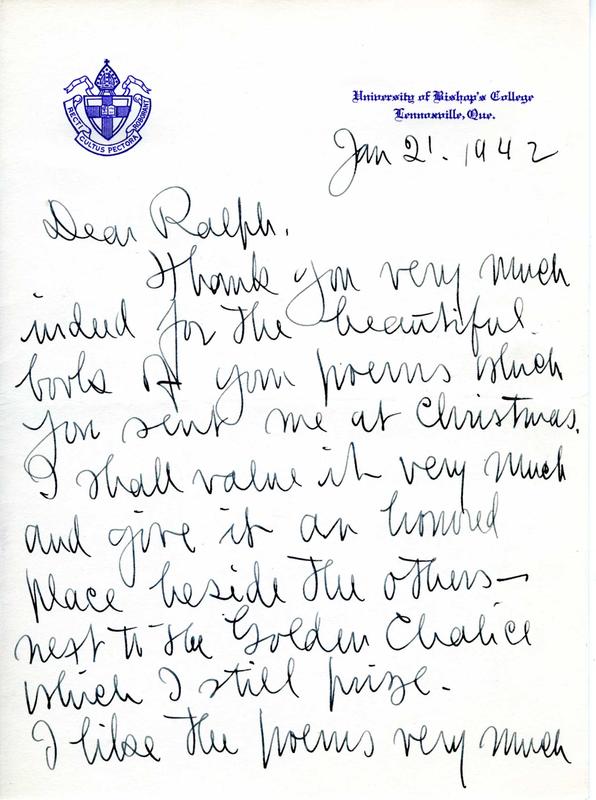 RECTI CULTUS PECTORA ROBORANT
University of Bishop's College
Lennoxville, Que.
Jan 21. 1942
Dear Ralph.
Thank you very much
indeed for the beautiful
book of your poems which
you sent me at Christmas.
I shall value it very much
and give it an honored
place beside the others—
next to the Golden Chalice
which I still prize.
I like the poems very much